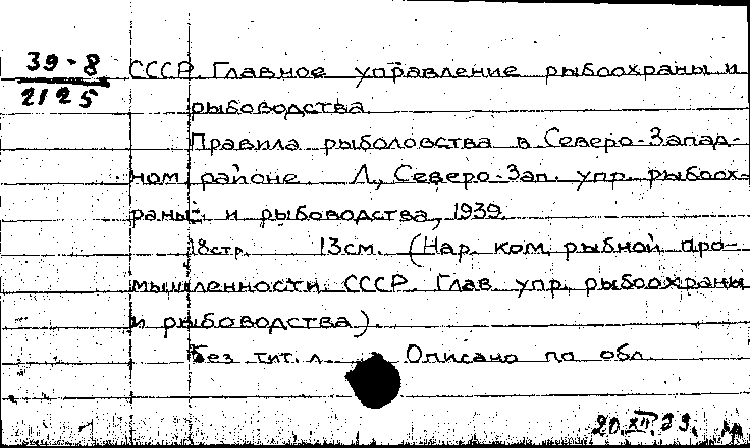 39-8
2125
СССР. Главное управление рыбоохраны и
рыбоводства.
Правила рыболовства в Северо-Запад-
ном районе. Л., Северо-Зап. упр. рыбоох-
раны и рыбоводства, 1939.
18стр. 13см. (Нар. ком. рыбной про-
мышленности СССР. Глав. упр. рыбоохраны
и рыбоводства).
Без тит. л. Описано по обл.
20.XII.39.